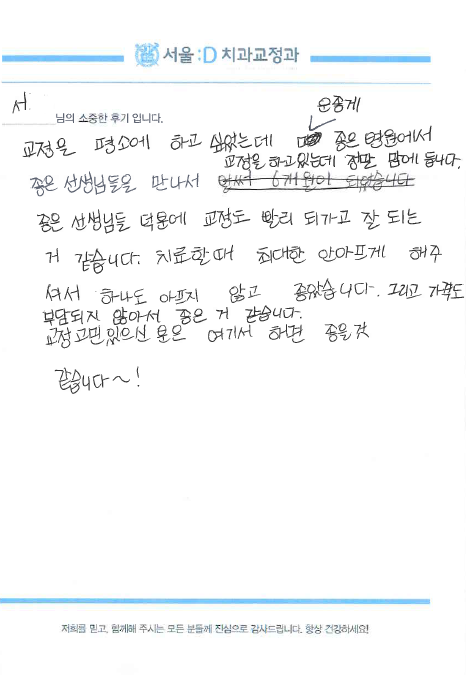 서울:D 치과교정과
서
님의 소중한 후기 입니다.
운좋게
교정을 평소에 하고 싶었는데 좋은 병원에서
교정을 하고있는데 정말 맘에 듭니다.
좋은 선생님들을 만나서 벌써 6개월이 되었습니다
좋은 선생님들 덕분에 교정도 빨리 되가고 잘 되는
거 같습니다. 치료할때 최대한 안아프게 해주
셔서 하나도 아프지 않고 좋았습니다. 그리고 가격도
부담되지 않아서 좋은 거 같습니다.
교정고민있으신 분은 여기서 하면 좋을것
같습니다~!
저희를 믿고, 함께해 주시는 모든 분들께 진심으로 감사드립니다. 항상 건강하세요!